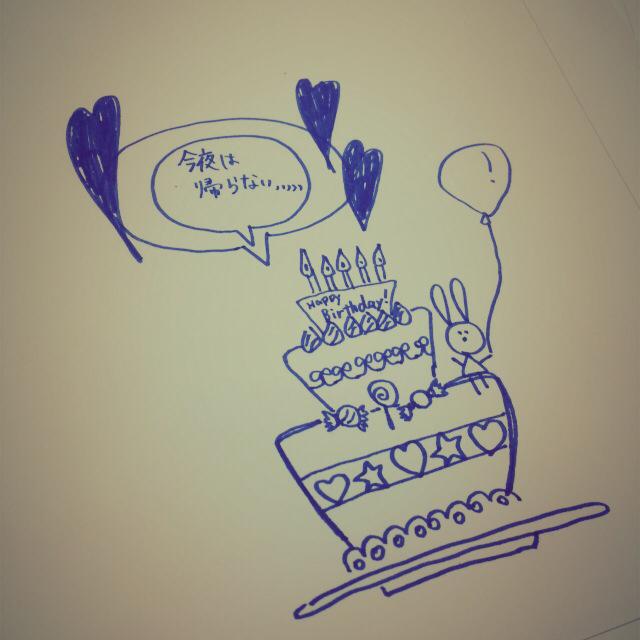 今夜は
帰らない、、、、、
Happy
Birthday!